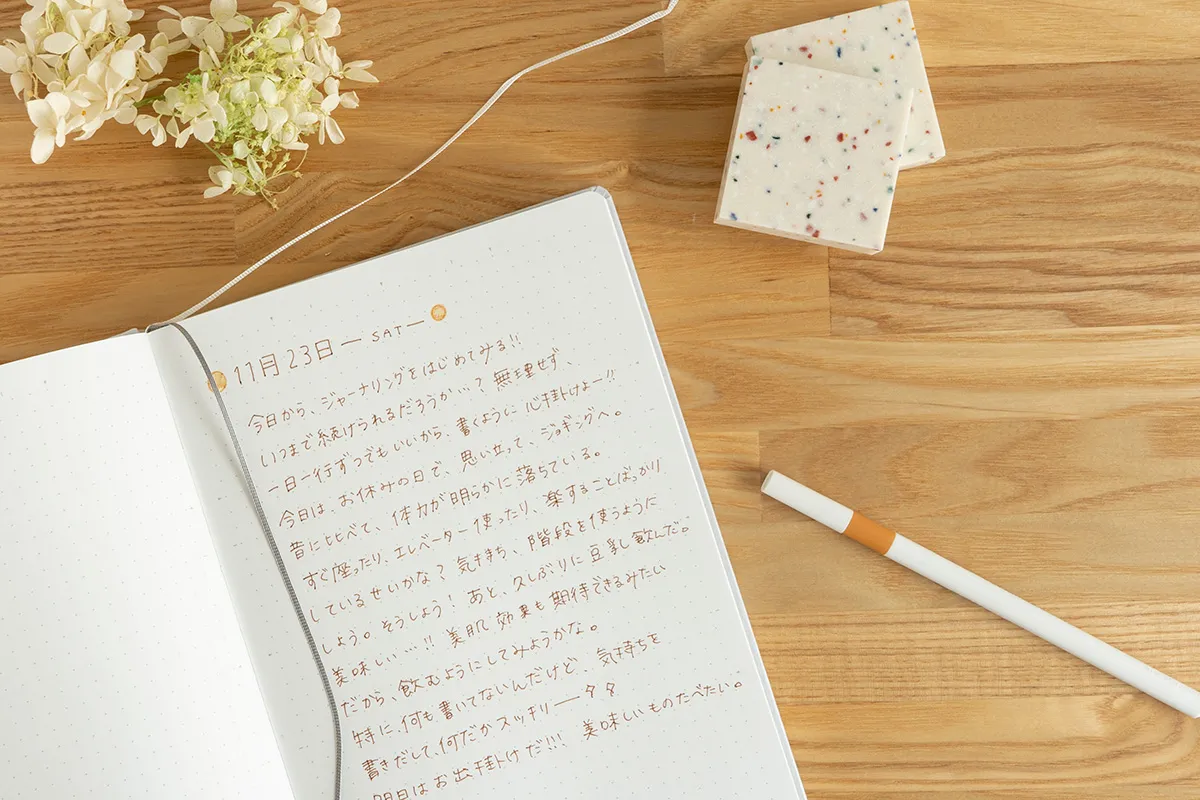 11月23日 — SAT —
今日から、ジャーナリングをはじめてみる!!
いつまで続けられるだろうか…? 無理せず、
一日一行ずつでもいいから、書くように心掛けよー!!
今日は、お休みの日で、思い立って、ジョギングへ。
昔に比べて、体力が明らかに落ちている。
すぐ座ったり、エレベーター使ったり、楽することばっかり
しているせいかな? 気持ち、階段を使うように
しよう。そうしよう! あと、久しぶりに豆乳飲んだ。
美味しい…!! 美肌効果も期待できるみたい
だから、飲むようにしてみようかな。
特に、何も書いてないんだけど、気持ちを
書きだして、何だかスッキリ——タタ
明日はお出掛けだ!!! 美味しいものたべたい。